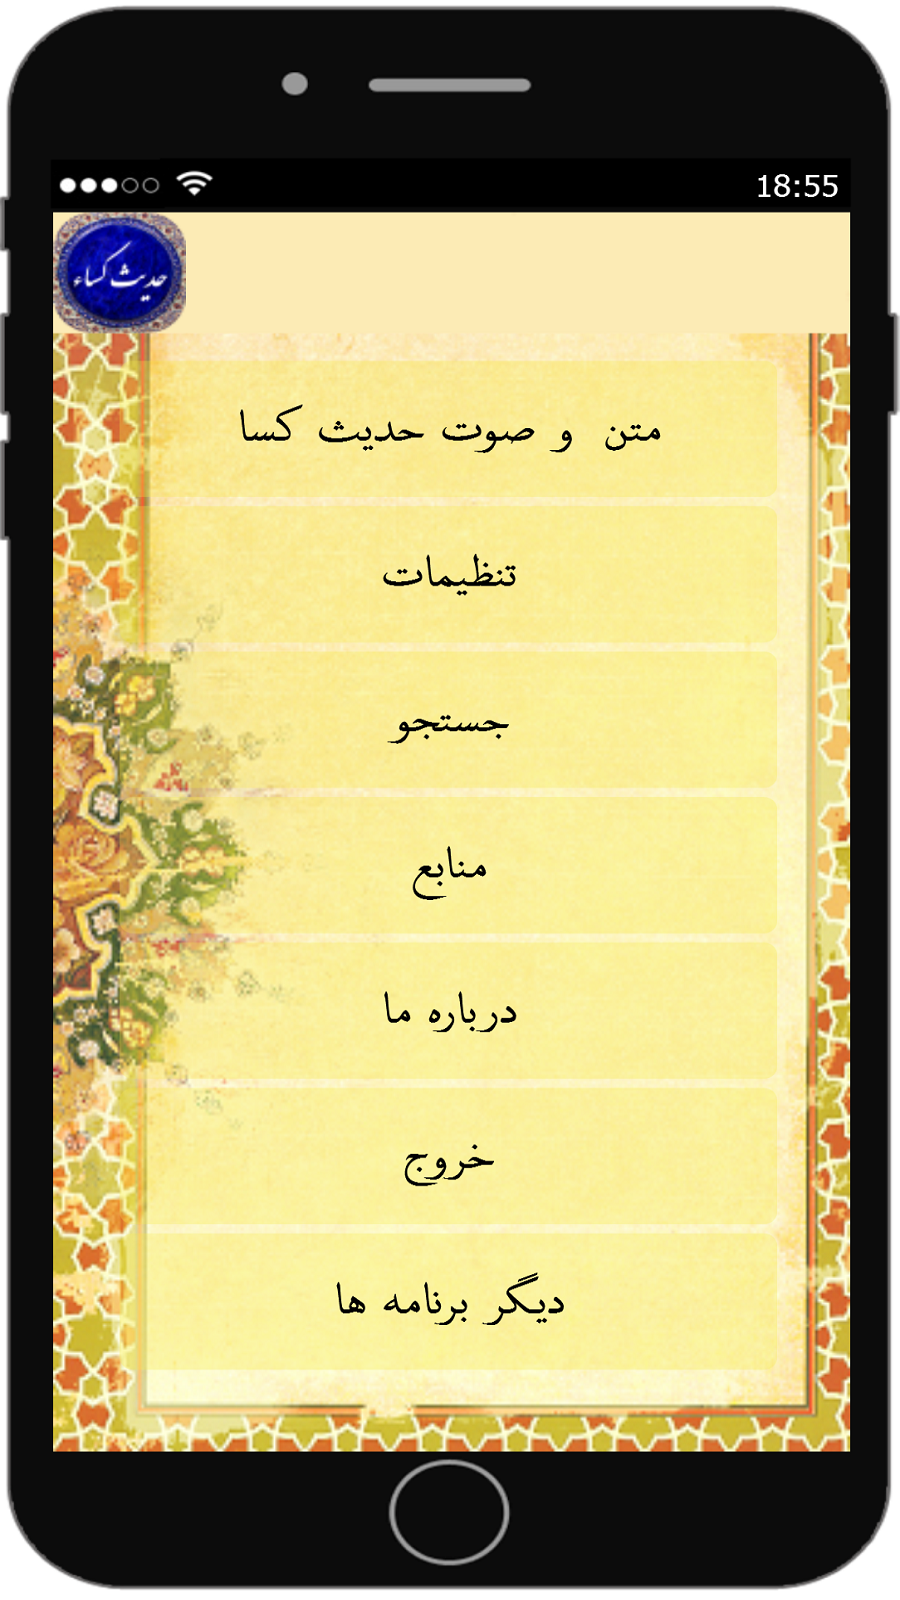 18:55
حدیث کساء
متن و صوت حدیث کسا
تنظیمات
جستجو
منابع
درباره ما
خروج
دیگر برنامه ها